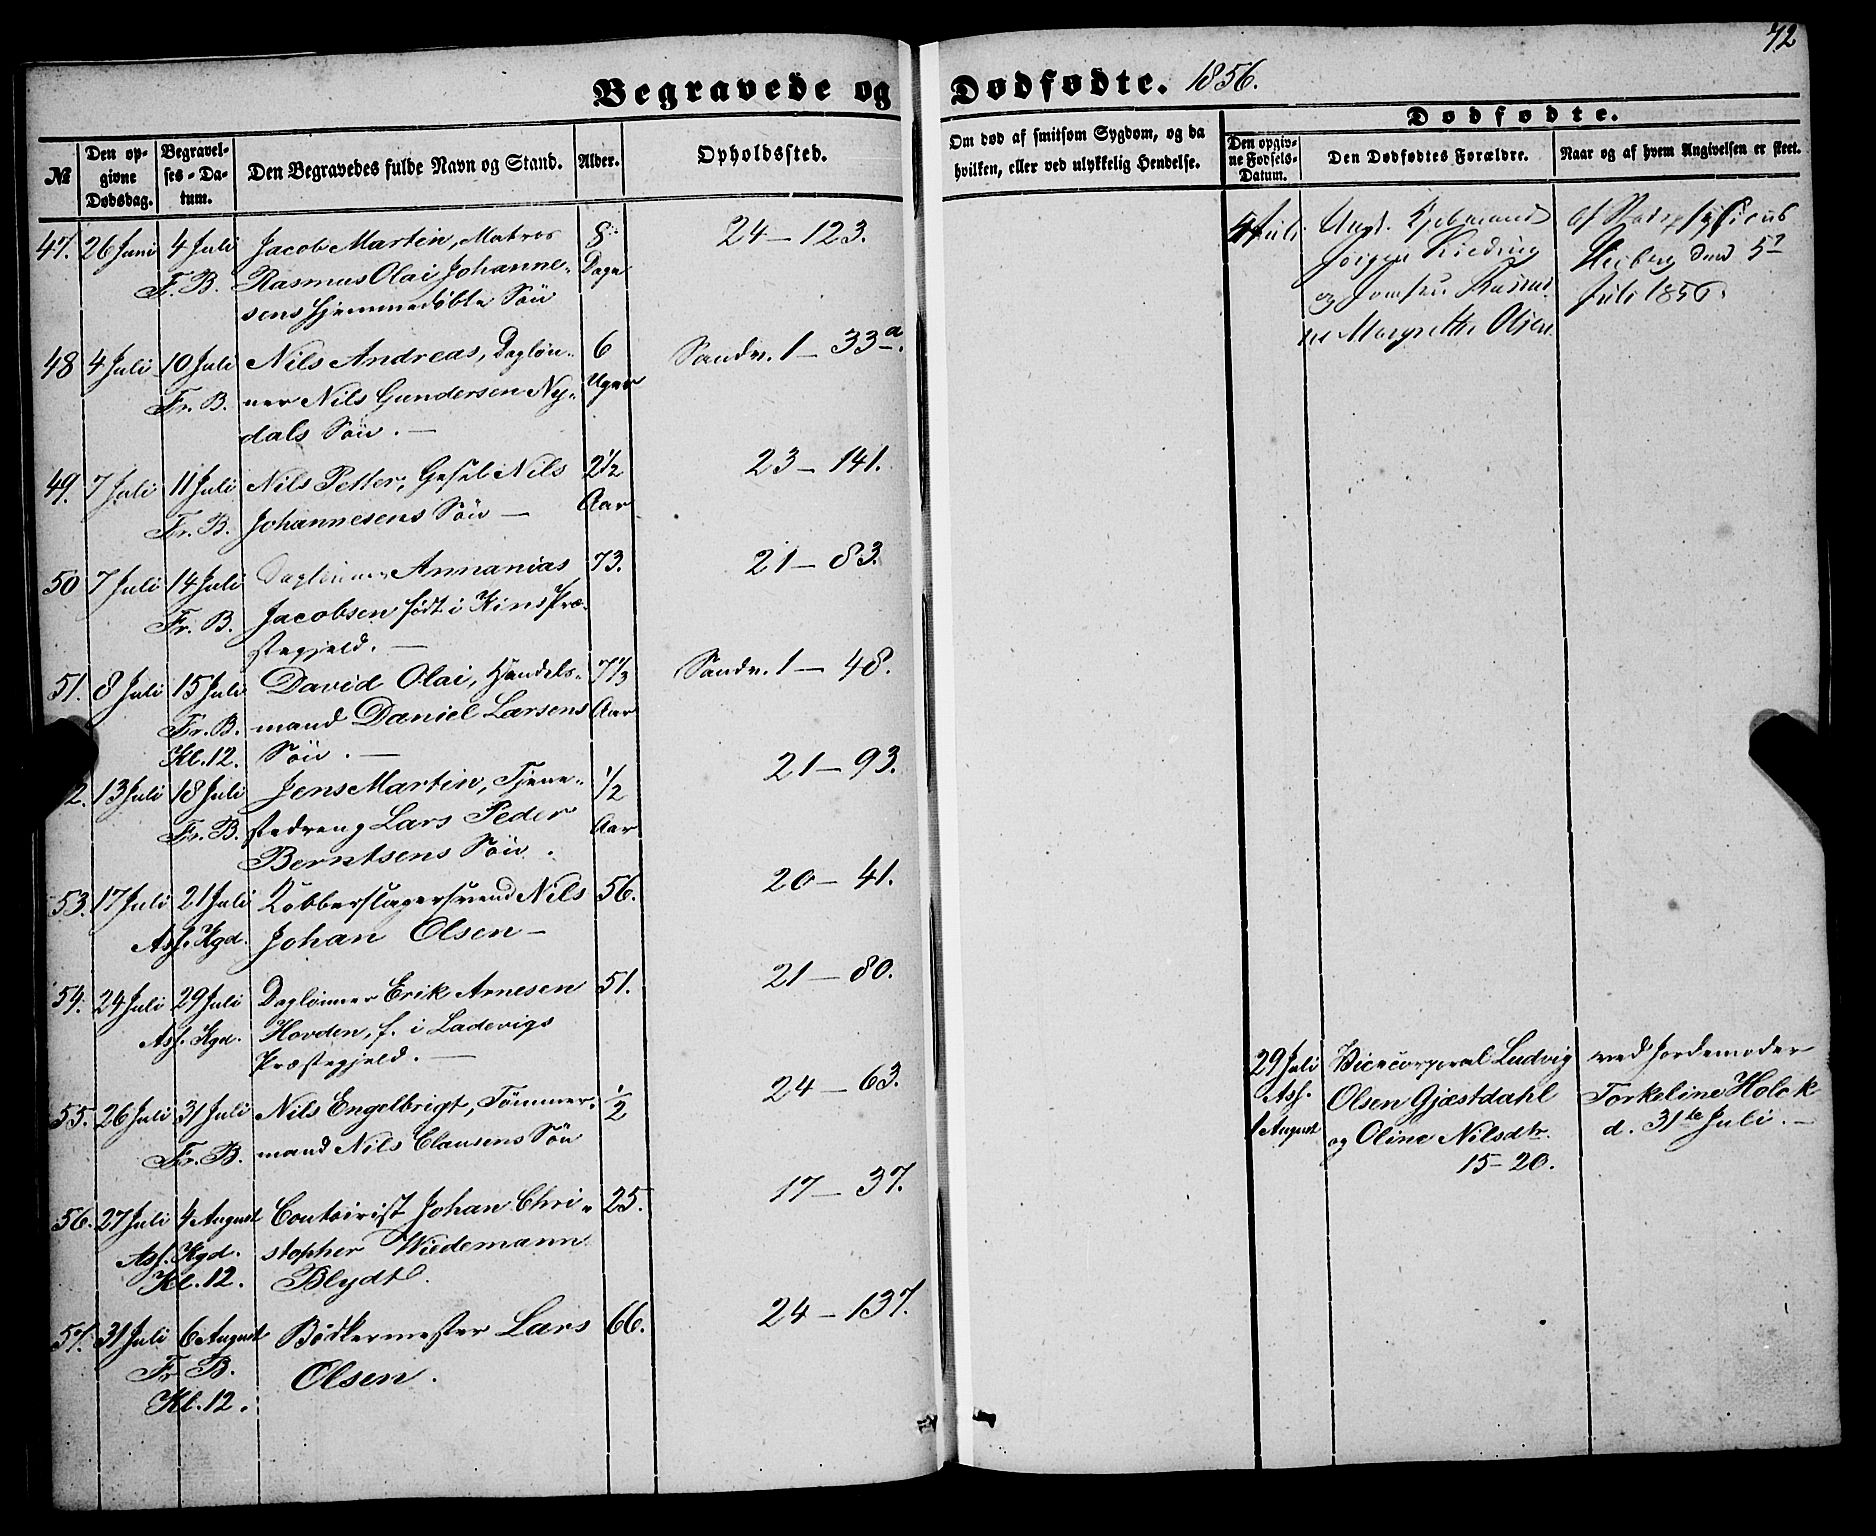 72
Begravede og Dødfødte. 1856.
№
Den opgivne Dødsdag.
Begravelses-Datum.
Den Begravedes fulde Navn og Stand.
Alder.
Opholdssted.
Om død af smitsom Sygdom, og da hvilken, eller ved ulykkelig Hendelse.
Dødfødte.
Den opgivne Fødsels-Datum.
Den Dødfødtes Forældre.
Naar og af hvem Angivelsen er skeet.
47. 26 Juni 4 Juli Jacob Martin, Matros 8 24 - 123.
F. B. Rasmus Olai Johanne- Dage
sens hjemmedøbte Søn
48 4 Juli 10 Juli Nils Andreas, Dagløn- 6 Sandv. 1 - 33a.
Fr. B. ner Nils Gundersen Ny- Uger
dals Søn. -
49. 7 Juli 11 Juli Nils Petter, Gesel Nils 2 1/2 23 - 141.
Fr. B. Johannesens Søn - Aar
50 7 Juli 14 Juli Daglønner Annanias 73. 21 - 83.
Fr. B. Jacobsen født i Kins Præ-
stegjeld. -
51. 8 Juli 15 Juli David Olai, Handels- 7 1/3 Sandv. 1 - 48.
Fr. B. mand Daniel Larsens Aar
Kl. 12. Søn. -
2. 13 Juli 18 Juli Jens Martin, Tjene- 1/2 21 - 93.
Fr. B. stedreng Lars Peder Aar
Berntsens Søn.
53. 17 Juli 21 Juli Kobberslagersvend Nils 56. 20 - 41.
Ass. Kgd. Johan Olsen -
54. 24 Juli 29 Juli Daglønner Erik Arnesen 51. 21 - 80.
Ass. Kgd. Hovden, f. i Ladevigs
Præstegjeld. -
55. 26 Juli 31 Juli Nils Engelbrigt, Tømmer- 1/2 24 - 63.
Fr. B. mand Nils Clausens Søn
56. 27 Juli 4 August Contoirist Johan Chri- 25. 17 - 37.
Ass. Kgd. stopher Wiedemann
Kl. 12. Blydt.
57. 31 Juli 6 August Bødkermester Lars 66. 24 - 137.
Fr. B. Olsen.
Kl. 12.
4 Juli Ungk.
Jørgen
og Jomfru
ne Margrethe Olsen
af Stadsphysicus
Heiberg
Juli 1856.
29 Juli Vicecorporal Ludvig ved Jordemoder
Ass. Olsen Gjæstdahl Torkeline Holck
1 August og Oline Nilsdtr. d. 31te Juli. -
15-20.